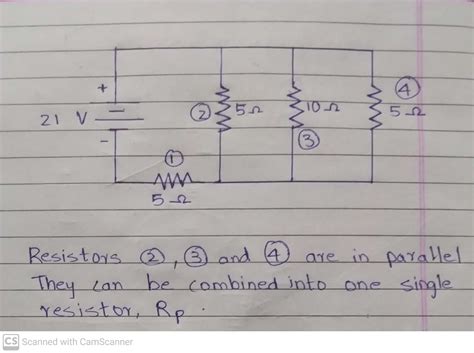 +
④
21 V
② 5 Ω
10 Ω
5 Ω
-
③
①
5 Ω
Resistors ②, ③ and ④ are in parallel
They can be combined into one single
resistor, Rp.
CS Scanned with CamScanner